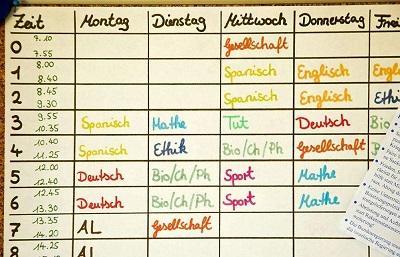 Zeit Montag Dienstag Mittwoch Donnerstag Frei
0 7.10 7.55 Gesellschaft
1 8.00 8.40 Spanisch Englisch Engl
2 8.45 9.30 Spanisch Englisch Ethi
3 9.55 10.35 Spanisch Mathe Tut Deutsch Bio
4 10.40 11.25 Spanisch Ethik Bio/Ch/Ph Gesellschaft
5 12.00 12.40 Deutsch Bio/Ch/Ph Sport Mathe
6 12.45 13.30 Deutsch Bio/Ch/Ph Sport Mathe
7 13.35 14.20 AL Gesellschaft
8 14.25 AL